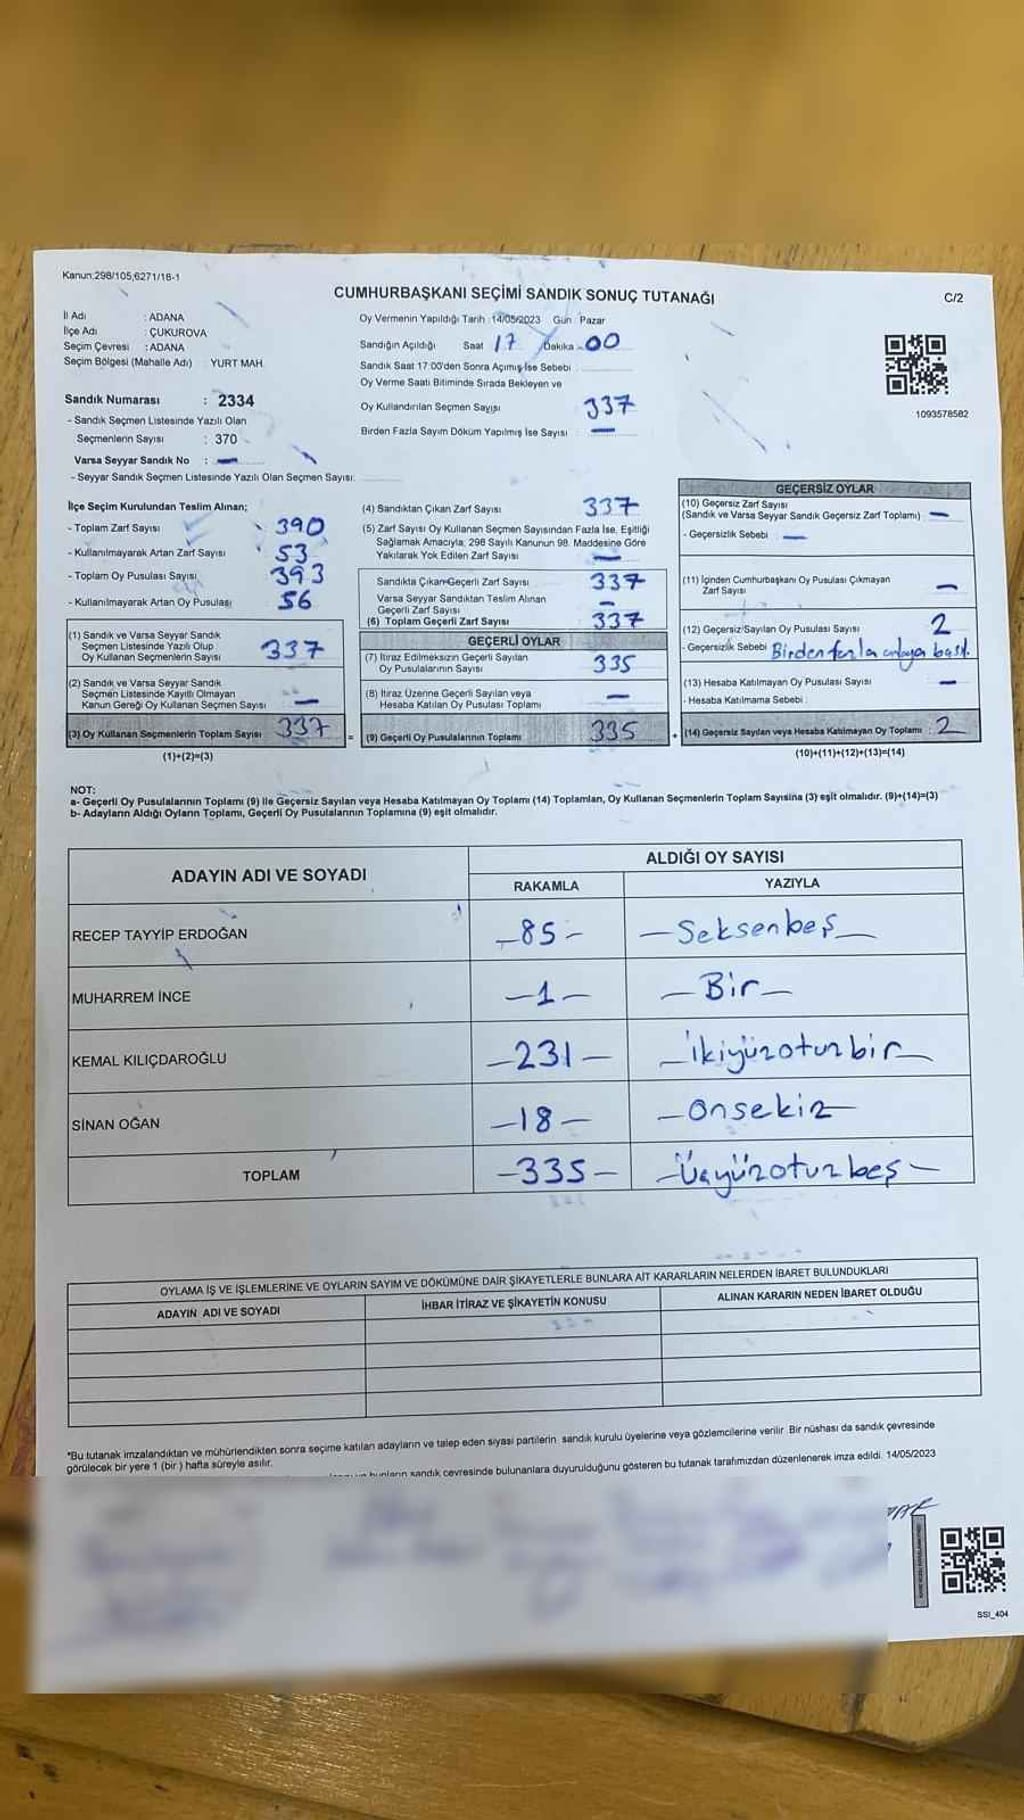 Kanun:298/105,6271/18-1
CUMHURBAŞKANI SEÇİMİ SANDIK SONUÇ TUTANAĞI
C/2
İl Adı : ADANA
İlçe Adı : ÇUKUROVA
Seçim Çevresi : ADANA
Seçim Bölgesi (Mahalle Adı) : YURT MAH
Sandık Numarası : 2334
- Sandık Seçmen Listesinde Yazılı Olan
Seçmenlerin Sayısı : 370
Varsa Seyyar Sandık No : —
- Seyyar Sandık Seçmen Listesinde Yazılı Olan Seçmen Sayısı:
Oy Vermenin Yapıldığı Tarih :14/05/2023 Gün : Pazar
Sandığın Açıldığı Saat 17 Dakika 00
Sandık Saat 17:00'den Sonra Açımış İse Sebebi :
Oy Verme Saati Bitiminde Sırada Bekleyen ve
Oy Kullandırılan Seçmen Sayısı 337
Birden Fazla Sayım Döküm Yapılmış İse Sayısı : —
1093578582
İlçe Seçim Kurulundan Teslim Alınan;
- Toplam Zarf Sayısı : 390
- Kullanılmayarak Artan Zarf Sayısı : 53
- Toplam Oy Pusulası Sayısı : 393
- Kullanılmayarak Artan Oy Pusulası : 56
(1) Sandık ve Varsa Seyyar Sandık
Seçmen Listesinde Yazılı Olup
Oy Kullanan Seçmenlerin Sayısı 337
(2) Sandık ve Varsa Seyyar Sandık
Seçmen Listesinde Kayıtlı Olmayan
Kanun Gereği Oy Kullanan Seçmen Sayısı : —
(3) Oy Kullanan Seçmenlerin Toplam Sayısı 337
(1)+(2)=(3)
(4) Sandıktan Çıkan Zarf Sayısı 337
(5) Zarf Sayısı Oy Kullanan Seçmen Sayısından Fazla İse, Eşitliği
Sağlamak Amacıyla; 298 Sayılı Kanunun 98. Maddesine Göre
Yakılarak Yok Edilen Zarf Sayısı —
Sandıkta Çıkan Geçerli Zarf Sayısı 337
Varsa Seyyar Sandıktan Teslim Alınan
Geçerli Zarf Sayısı —
(6) Toplam Geçerli Zarf Sayısı 337
GEÇERLİ OYLAR
(7) İtiraz Edilmeksizin Geçerli Sayılan
Oy Pusulalarının Sayısı 335
(8) İtiraz Üzerine Geçerli Sayılan veya
Hesaba Katılan Oy Pusulası Toplamı —
= (9) Geçerli Oy Pusulalarının Toplamı 335 +
GEÇERSİZ OYLAR
(10) Geçersiz Zarf Sayısı
(Sandık ve Varsa Seyyar Sandık Geçersiz Zarf Toplamı) —
- Geçersizlik Sebebi : —
(11) İçinden Cumhurbaşkanı Oy Pusulası Çıkmayan
Zarf Sayısı —
(12) Geçersiz Sayılan Oy Pusulası Sayısı 2
- Geçersizlik Sebebi Birden fazla
(13) Hesaba Katılmayan Oy Pusulası Sayısı —
- Hesaba Katılmama Sebebi :
(14) Geçersiz Sayılan veya Hesaba Katılmayan Oy Toplamı : 2
(10)+(11)+(12)+(13)=(14)
NOT:
a- Geçerli Oy Pusulalarının Toplamı (9) ile Geçersiz Sayılan veya Hesaba Katılmayan Oy Toplamı (14) Toplamları, Oy Kullanan Seçmenlerin Toplam Sayısına (3) eşit olmalıdır. (9)+(14)=(3)
b- Adayların Aldığı Oyların Toplamı, Geçerli Oy Pusulalarının Toplamına (9) eşit olmalıdır.
ADAYIN ADI VE SOYADI ALDIĞI OY SAYISI
RAKAMLA YAZIYLA
RECEP TAYYİP ERDOĞAN -85- -Seksenbeş-
MUHARREM İNCE -1- -Bir-
KEMAL KILIÇDAROĞLU -231- -ikiyüzotuzbir-
SİNAN OĞAN -18- -Onsekiz-
TOPLAM -335- -Üçyüzotuzbeş-
OYLAMA İŞ VE İŞLEMLERİNE VE OYLARIN SAYIM VE DÖKÜMÜNE DAİR ŞİKAYETLERLE BUNLARA AİT KARARLARIN NELERDEN İBARET BULUNDUKLARI
ADAYIN ADI VE SOYADI İHBAR İTİRAZ VE ŞİKAYETİN KONUSU ALINAN KARARIN NEDEN İBARET OLDUĞU
*Bu tutanak imzalandıktan ve mühürlendikten sonra seçime katılan adayların ve talep eden siyasi partilerin sandık kurulu üyelerine veya gözlemcilerine verilir. Bir nüshası da sandık çevresinde
görülecek bir yere 1 (bir) hafta süreyle asılır.
bunların sandık çevresinde bulunanlara duyurulduğunu gösteren bu tutanak tarafımızdan düzenlenerek imza edildi. 14/05/2023
SSI_404